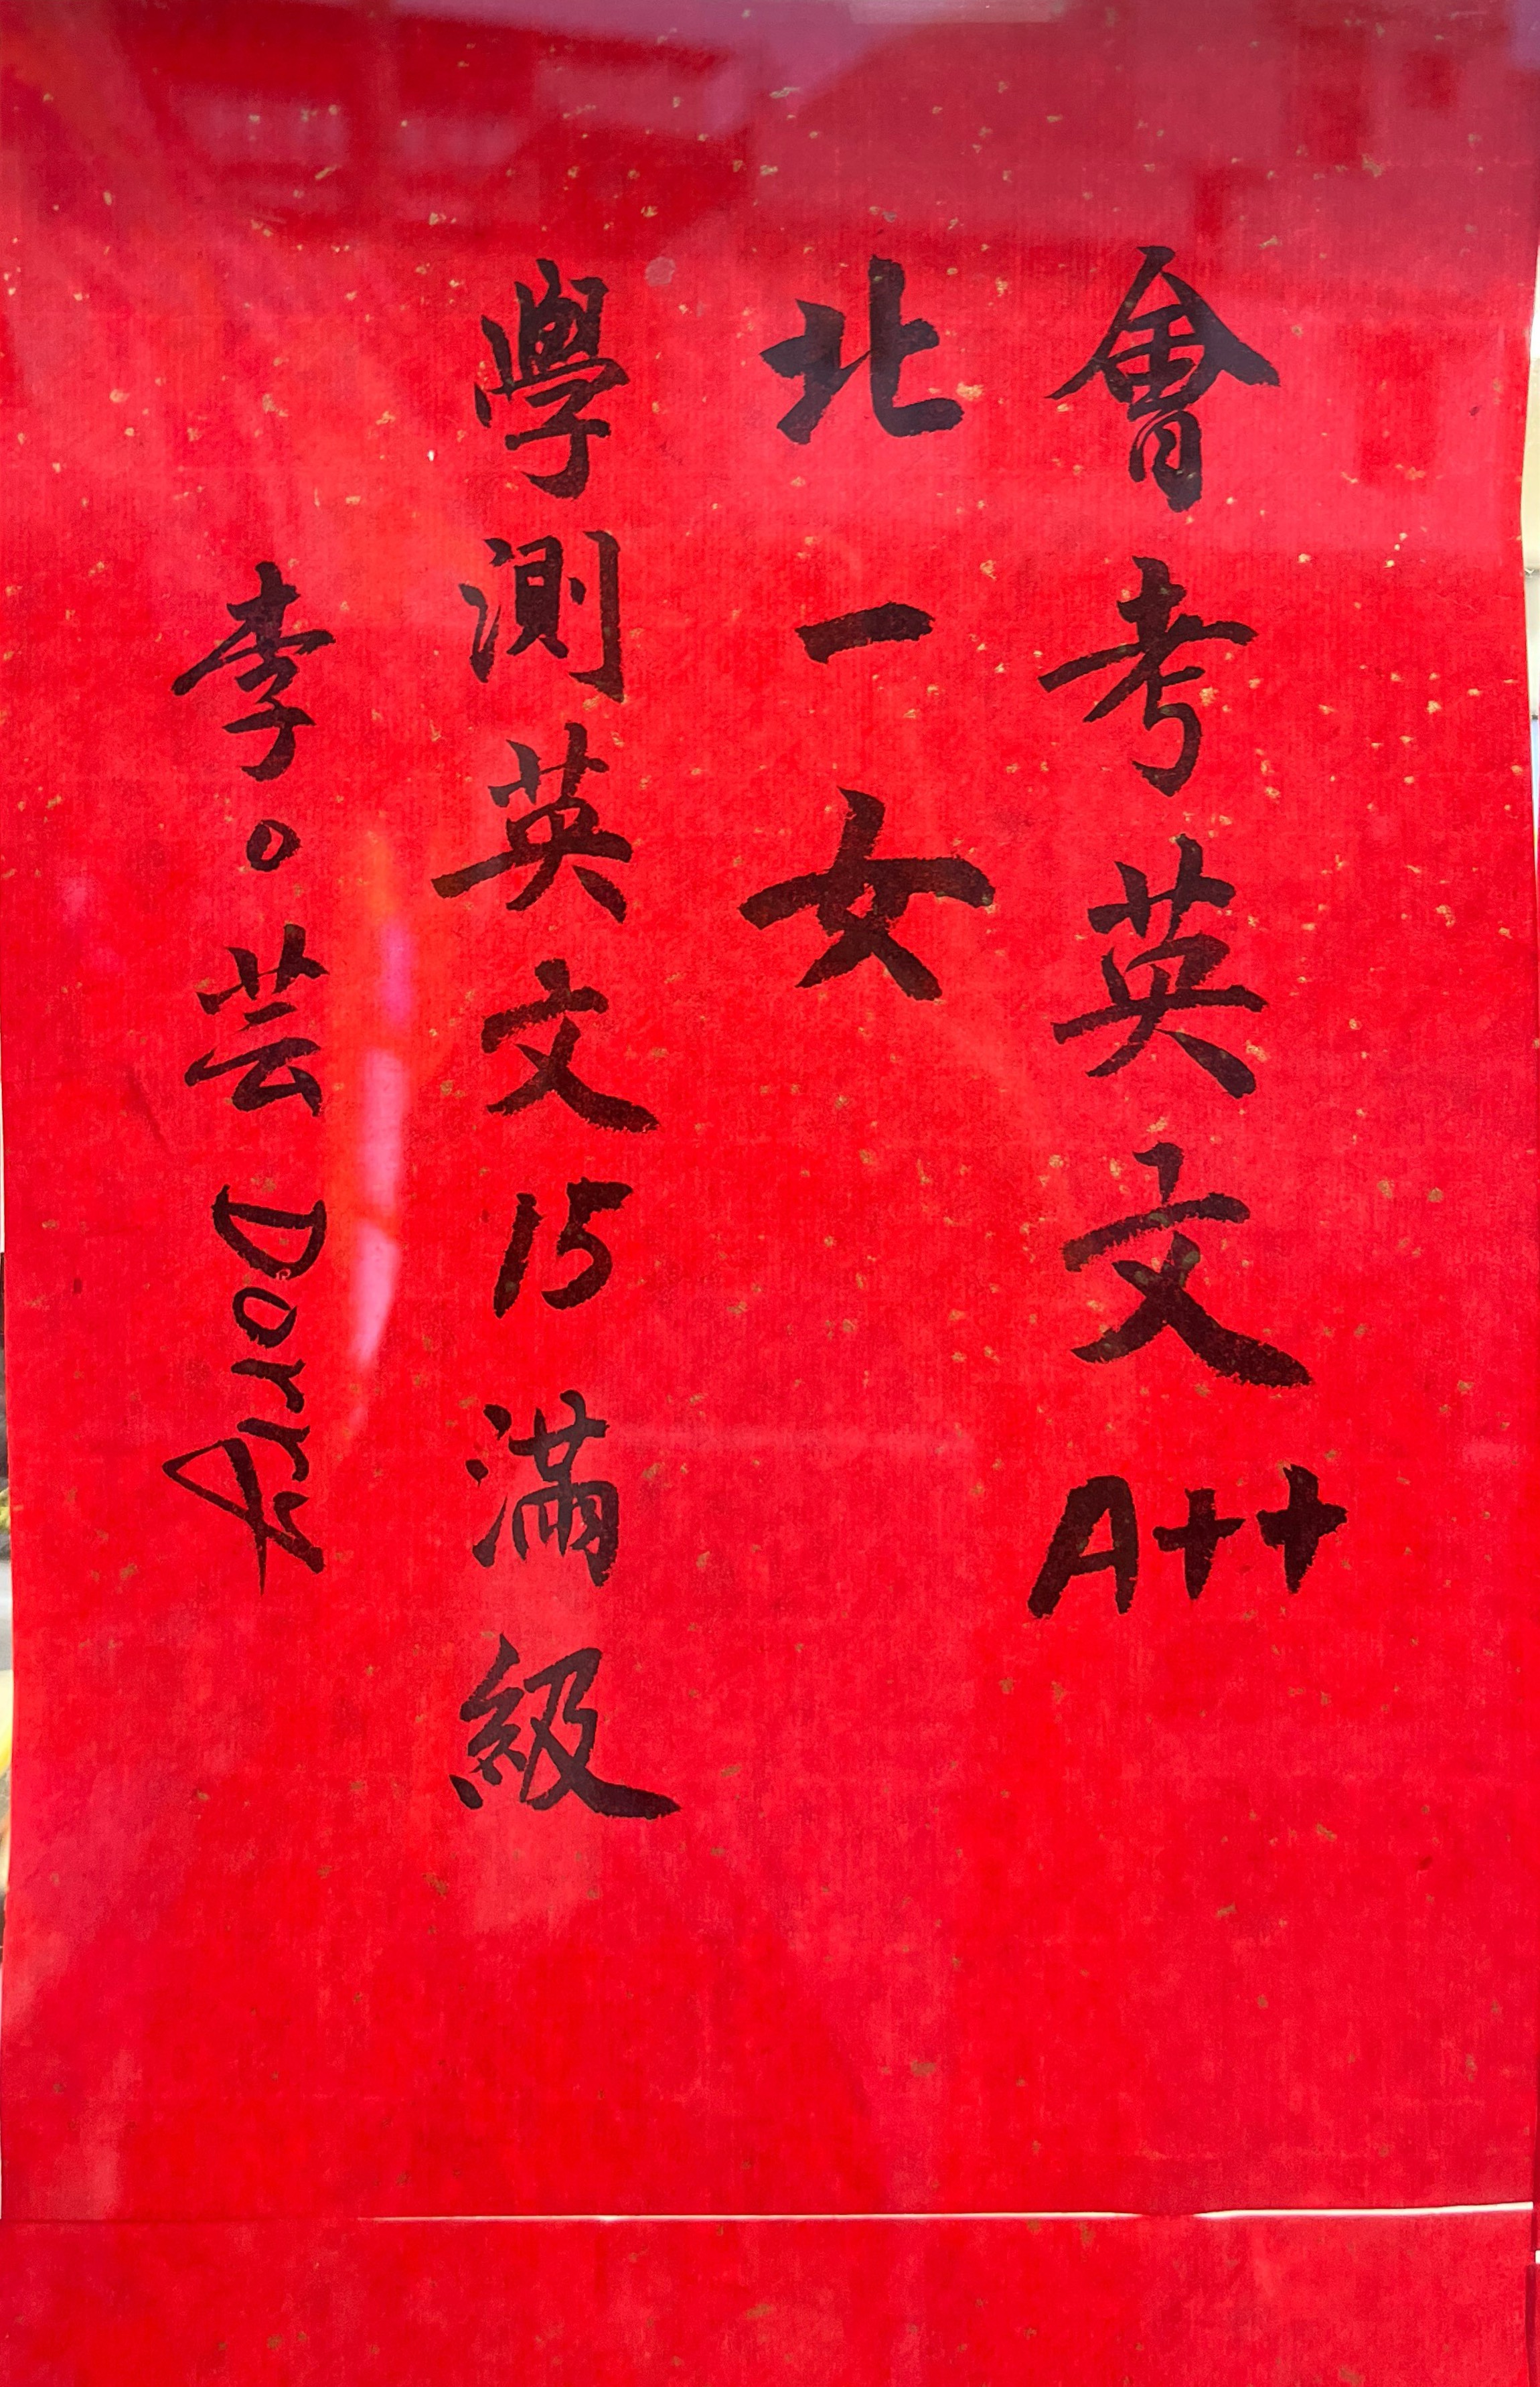 會考英文A++
北一女
學測英文15滿級
李○芸 Dorris